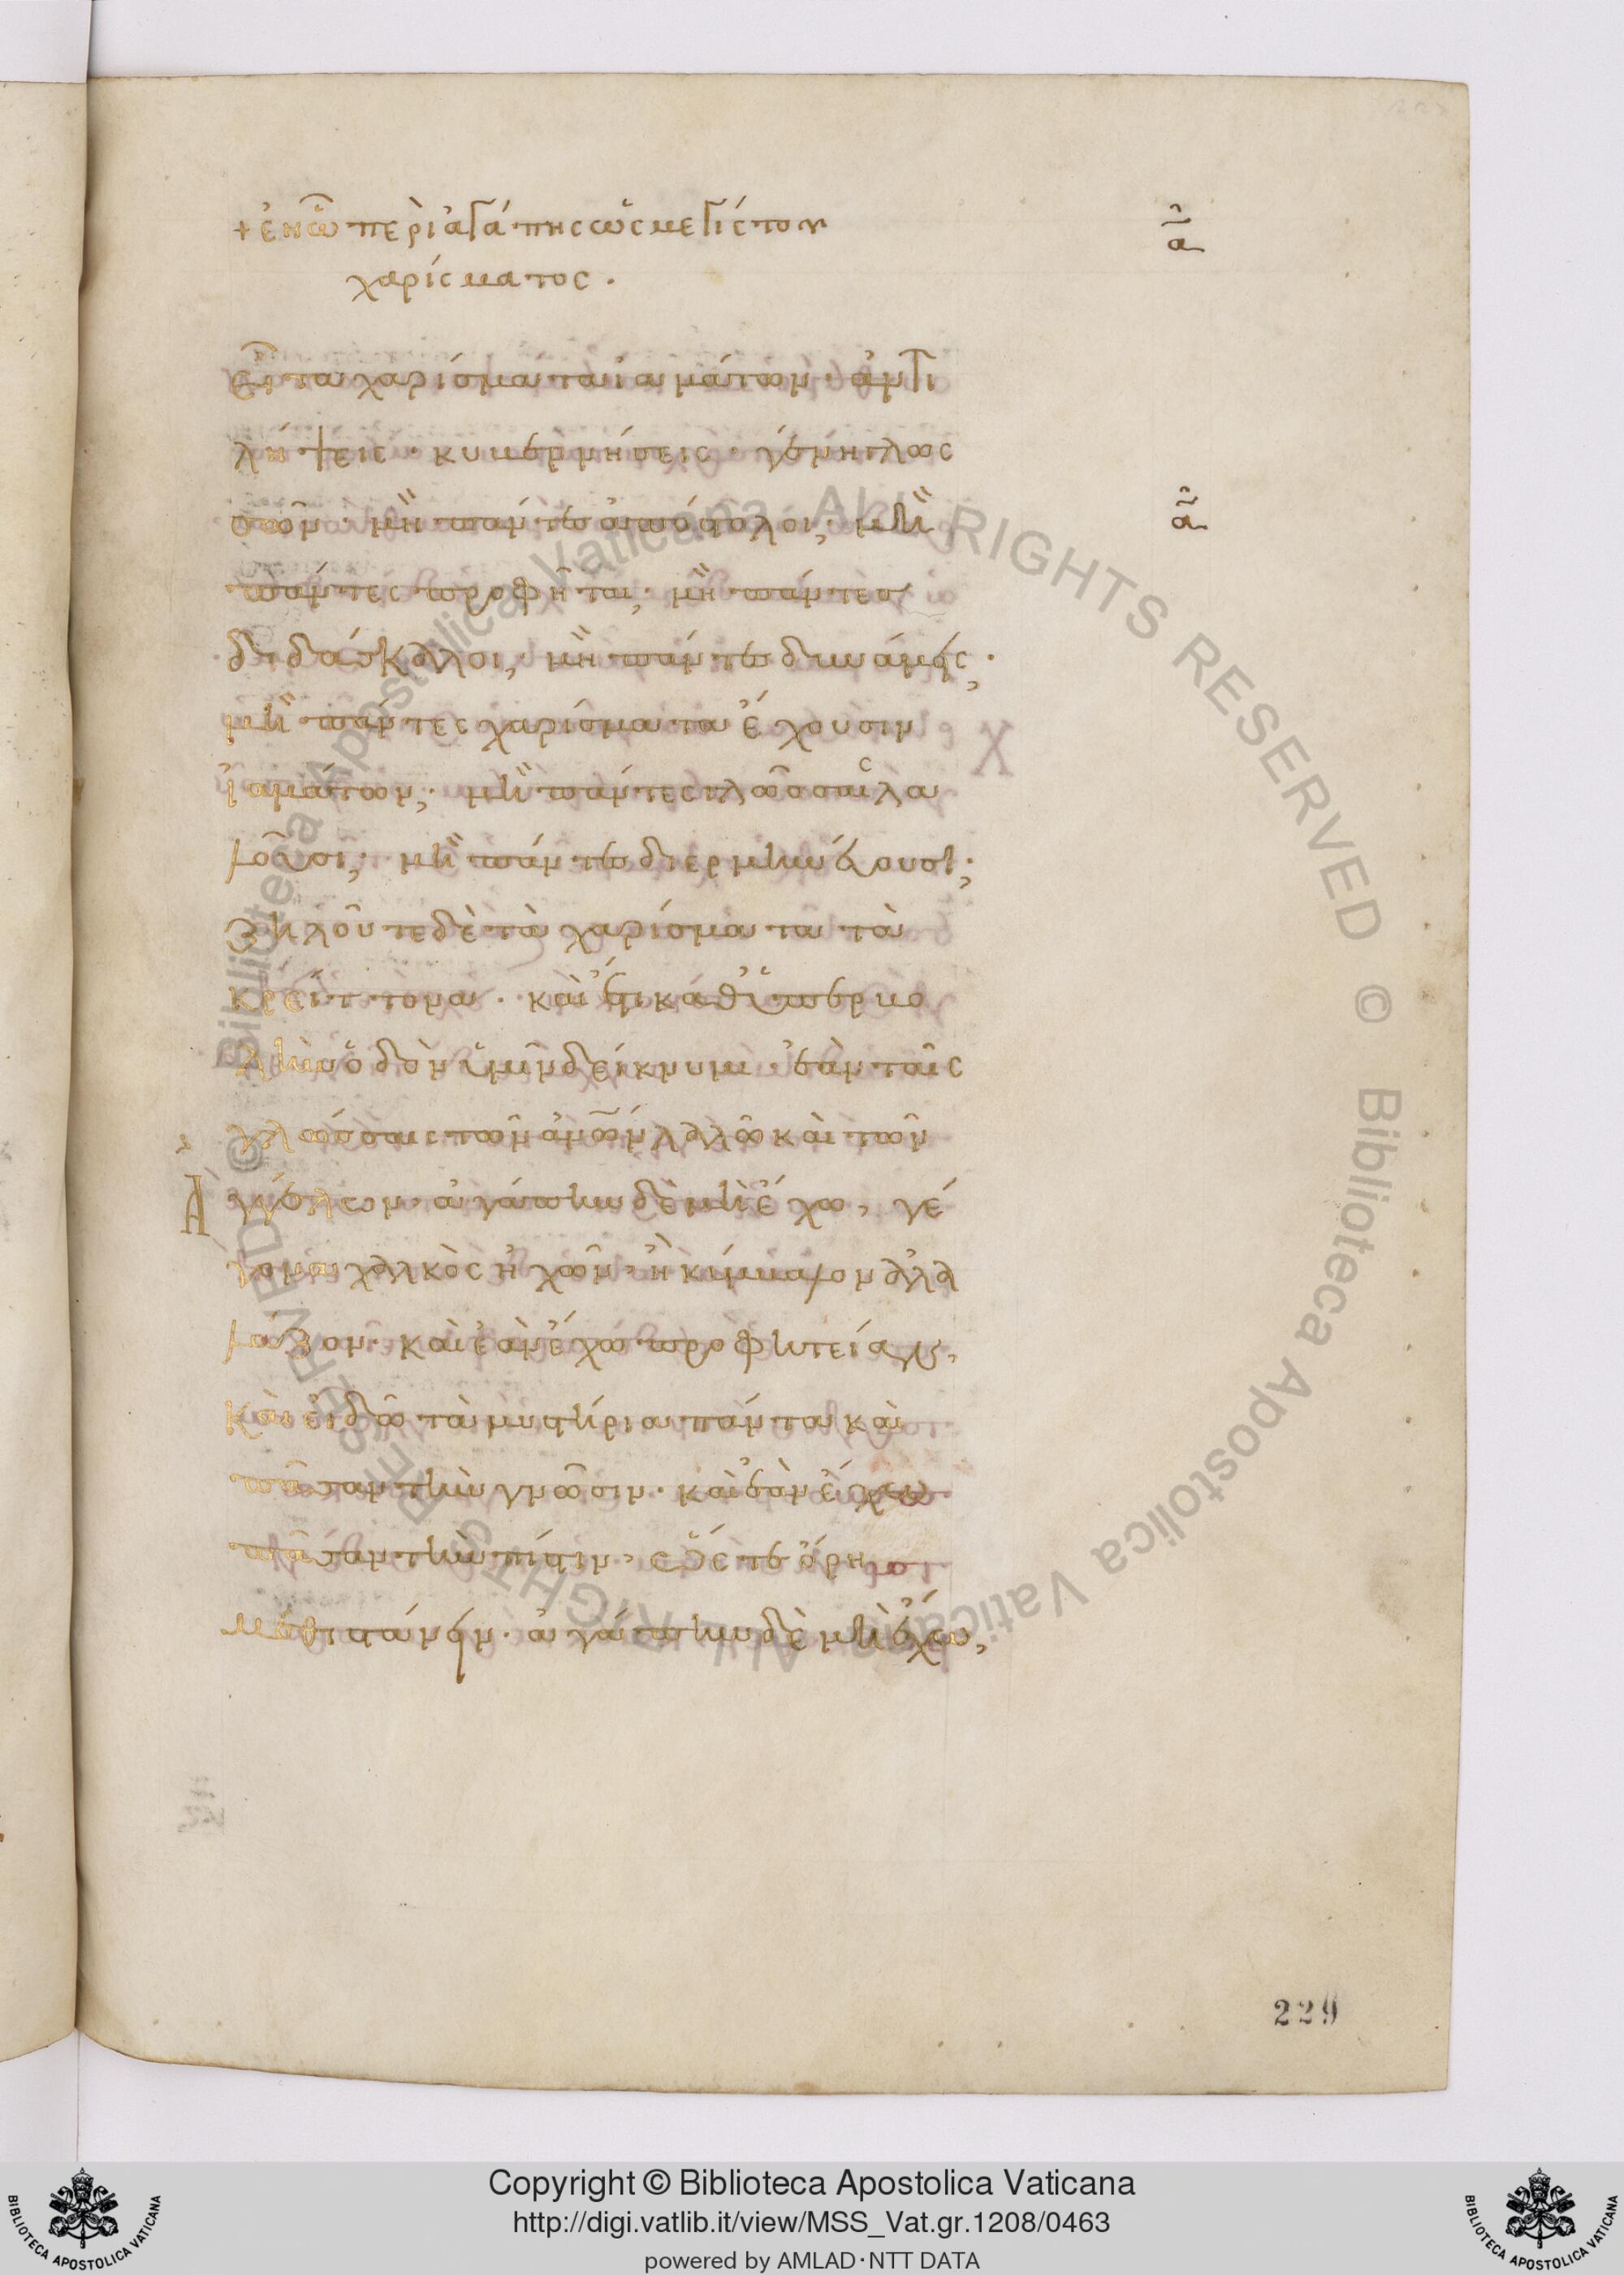 + ἐν ᾧ περὶ ἀγάπης ὡς μεγίστου
χαρίσματος.
α
εἶτα χαρίσματα ἰαμάτων· ἀντι
λήψεις· κυβερνήσεις· γένη γλωσ
σῶν· μὴ πάντες ἀπόστολοι; μὴ
α
πάντες προφῆται; μὴ πάντες
διδάσκαλοι; μὴ πάντες δυνάμεις;
μὴ πάντες χαρίσματα ἔχουσιν
ἰαμάτων; μὴ πάντες γλώσσαις λα
λοῦσι; μὴ πάντες διερμηνεύουσι;
ζηλοῦτε δὲ τὰ χαρίσματα τὰ
κρείττονα· καὶ ἔτι καθ' ὑπερβο
λὴν ὁδὸν ὑμῖν δείκνυμι· ἐὰν ταῖς
γλώσσαις τῶν ἀνων λαλῶ καὶ τῶν
ἀγγέλων· ἀγάπην δὲ μὴ ἔχω, γέ
γονα χαλκὸς ἠχῶν· ἢ κύμβαλον ἀλα
λάζον· καὶ ἐὰν ἔχω προφητείαν,
καὶ εἰδῶ τὰ μυστήρια πάντα καὶ
πᾶσαν τὴν γνῶσιν· καὶ ἐὰν ἔχω
πᾶσαν τὴν πίστιν, ὥστε ὄρη
μεθιστάνειν· ἀγάπην δὲ μὴ ἔχω,
229
© Biblioteca Apostolica Vaticana. ALL RIGHTS RESERVED
© Biblioteca Apostolica Vaticana. ALL RIGHTS RESERVED
BIBLIOTECA APOSTOLICA VATICANA
Copyright © Biblioteca Apostolica Vaticana
http://digi.vatlib.it/view/MSS_Vat.gr.1208/0463
powered by AMLAD·NTT DATA
BIBLIOTECA APOSTOLICA VATICANA